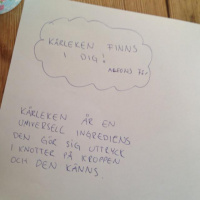 KÄRLEKEN FINNS
I DIG!
KÄRLEKEN ÄR EN
UNIVERSELL INGREDIENS
DEN GÖR SIG UTTRYCK
I KNOTTER PÅ KROPPEN
OCH DEN KÄNNS